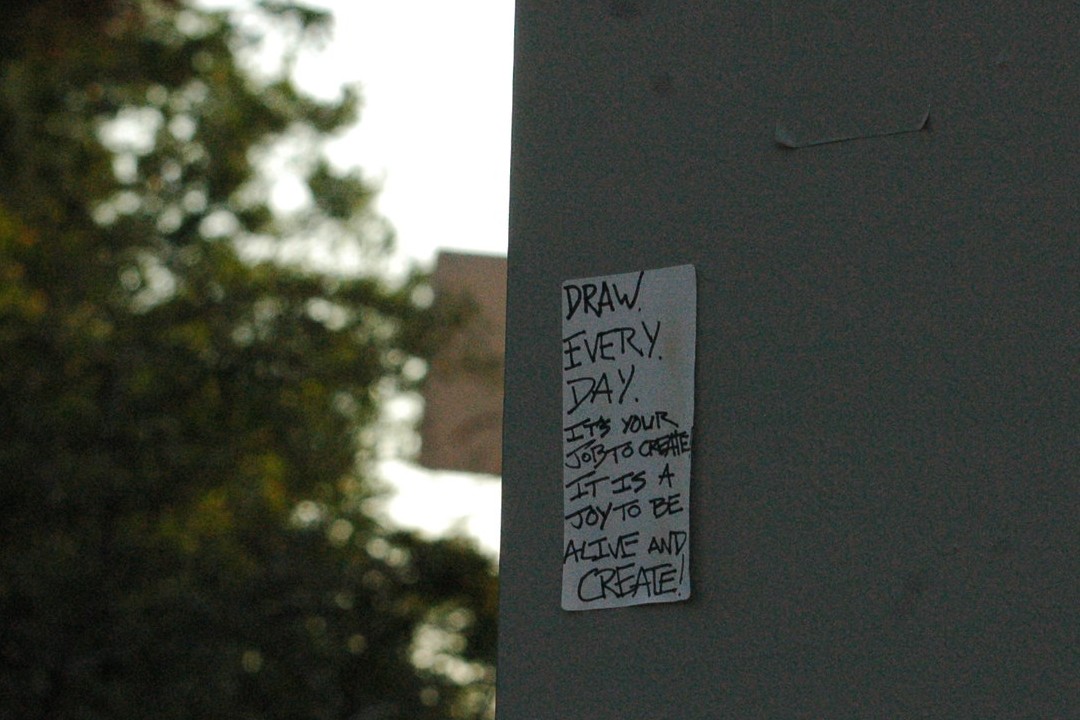 DRAW.
EVERY.
DAY.
IT'S YOUR
JOB TO CREATE
IT IS A
JOY TO BE
ALIVE AND
CREATE!